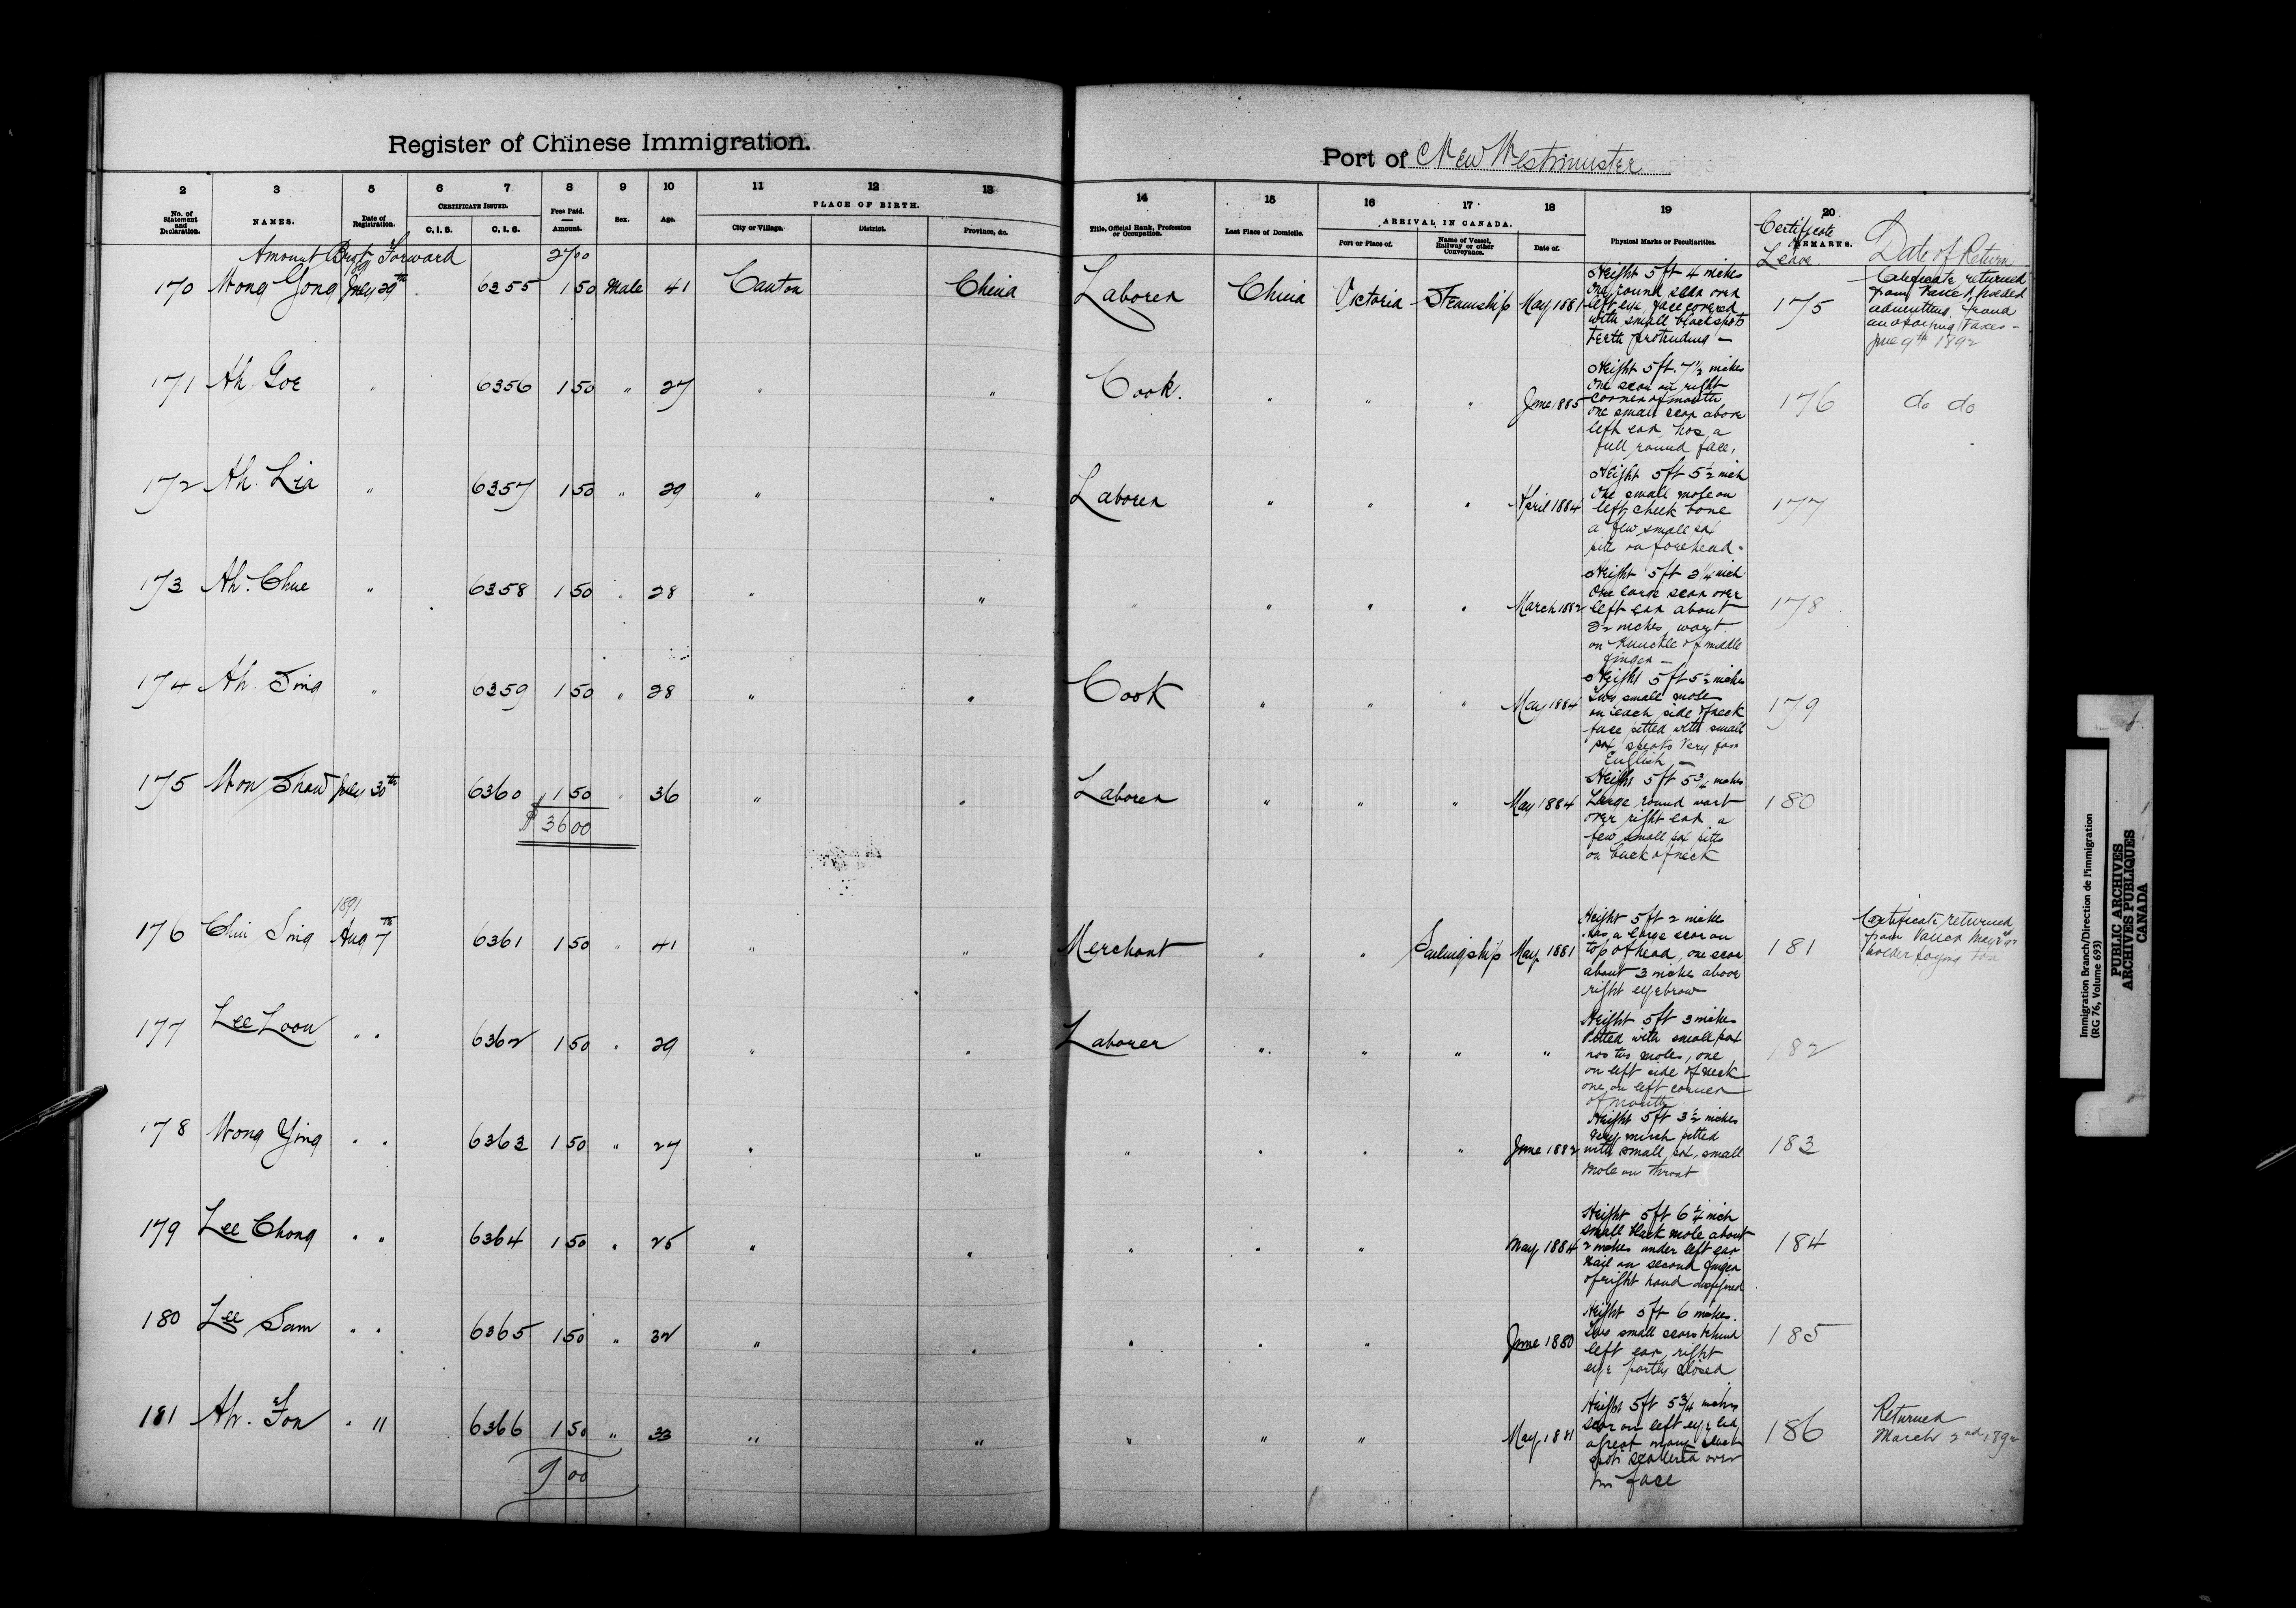 Register of Chinese Immigration.
Port of New Westminster
2 3 5 6 7 8 9 10 11 12 13 14 15 16 17 18 19 20
No. of Statement and Declaration. NAMES. Date of Registration. CERTIFICATE ISSUED. C.I.5. C.I.6. Fees Paid. Amount. Sex. Age. PLACE OF BIRTH. City or Village. District. Province, &c. Title, Official Rank, Profession or Occupation. Last Place of Domicile. ARRIVAL IN CANADA. Port or Place of. Name of Vessel, Railway or other Conveyance. Date of. Physical Marks or Peculiarities. REMARKS.
Certificate Leave. Date of Return
Amount Brot Forward 2700
1891
170 Wong Gong July 29th 6355 1 50 Male 41 Canton China Laborer China Victoria Steamship May 1881
Height 5 ft 4 inches
one round scar over
left eye, face covered
with small black spots
teeth protruding —
175
Certificate returned
from
admitting fraud
June 9th 1892
171 Ah. Goe " 6356 1 50 " 27 " " Cook. " " " June 1885
Height 5 ft. 7 1/2 inches
one scar on right
corner of mouth
one small scar above
left ear, has a
full round face,
176 do do
172 Ah. Lia " 6357 1 50 " 29 " " Laborer " " " April 1884
Height 5 ft 5 1/2 inch
One small mole on
left cheek bone
a few small pox
pits on forehead -
177
173 Ah. Chue " 6358 1 50 " 28 " " " " " " March 1882
Height 5 ft 3 1/4 inch
One large scar over
left ear about
2 1/2 inches, wart
on knuckle of middle
finger —
178
174 Ah Sing " 6359 1 50 " 28 " " Cook " " " May 1884
Height 5 ft 5 1/2 inches
Two small mole
on each side of neck
face pitted with small
pox, speaks very fair
English —
179
175 Mon Shaw July 30th 6360 1 50 " 36 " " Laborer " " " May 1884
Height 5 ft 5 3/4 inches
Large round wart
over right ear, a
few small pox pitts
on back of neck
180
$ 36 00
1891
176 Chin Sing Aug 7th 6361 1 50 " 41 " " Merchant " " Sailingship May 1881
Height 5 ft 2 inche
has a large scar on
top of head, one scar
about 3 inche above
right eyebrow
181
Certificate returned
from May
holder
177 Lee Loon " " 6362 1 50 " 29 " " Laborer " " " "
Height 5 ft 3 inches
Pitted with small pox
has two moles, one
on left side of neck
one on left corner
of mouth
182
178 Wong Ying " " 6363 1 50 " 27 " " " " " " June 1882
Height 5 ft 3 1/2 inches
Very much pitted
with small pox, small
mole on throat
183
179 Lee Chong " " 6364 1 50 " 25 " " " " " May 1884
Height 5 ft 6 1/4 inch
small black mole about
2 inches under left ear
nail on second finger
of right hand disfigured
184
180 Lee Sam " " 6365 1 50 " 32 " " " " " June 1880
Height 5 ft 6 inches.
Two small scars behind
left ear, right
eye partly closed
185
181 Ah. Fon " " 6366 1 50 " 33 " " " " " May 1881
Height 5 ft 5 3/4 inches
scar on left eye lid,
a great many black
spots scattered over
his face
186
Returned
March 2nd 1892
9 00
Immigration Branch/Direction de l'immigration
(RG 76, Volume 693)
PUBLIC ARCHIVES
ARCHIVES PUBLIQUES
CANADA